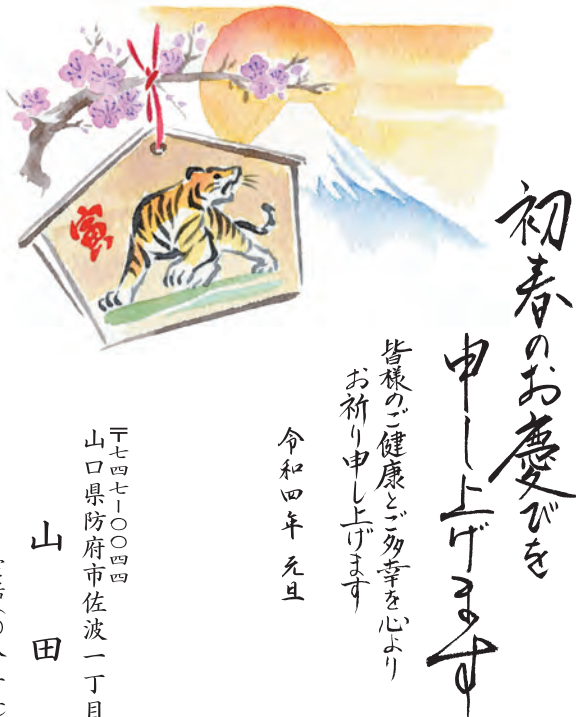 初春のお慶びを
申し上げます
皆様のご健康とご多幸を心より
お祈り申し上げます
令和四年 元旦
〒七四七-〇〇四四
山口県防府市佐波一丁目
山田
寅